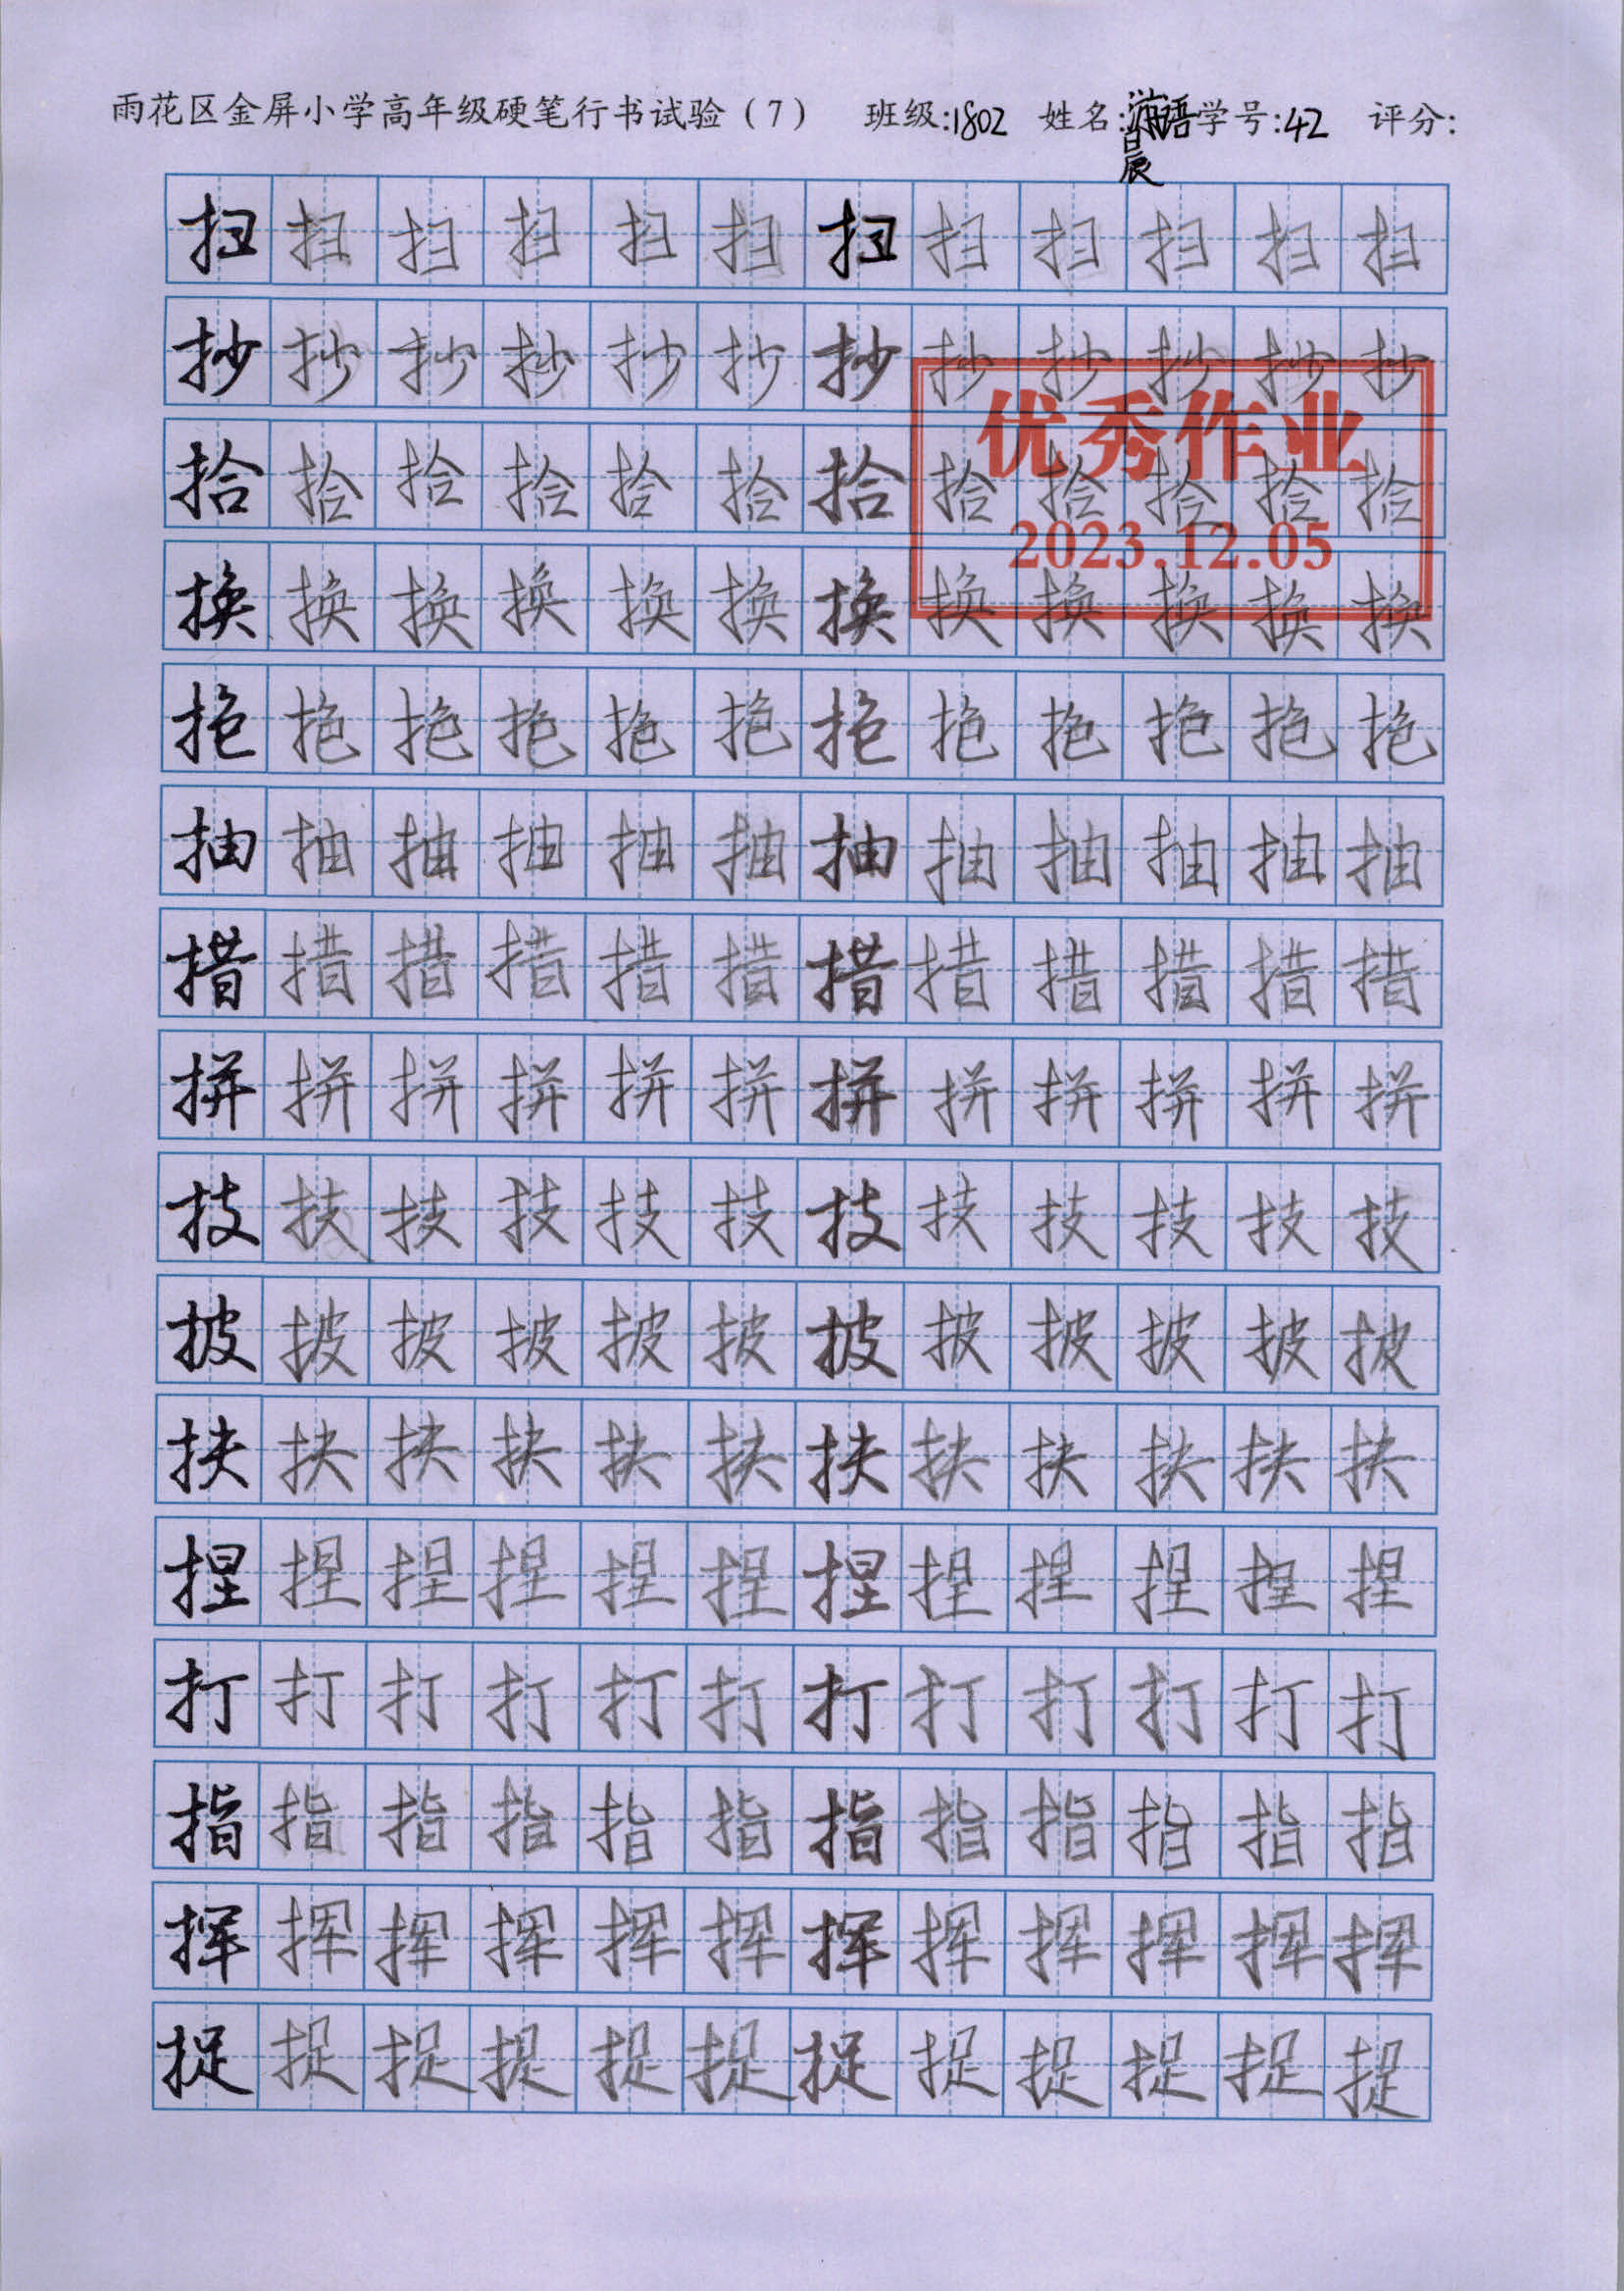 雨花区金屏小学高年级硬笔行书试验（7） 班级:1802 姓名:语晨 学号:42 评分:
扫扫扫扫扫扫扫扫扫扫扫扫
抄抄抄抄抄抄抄抄抄抄抄抄
优秀作业
拾拾拾拾拾拾拾拾拾拾拾拾
2023.12.05
换换换换换换换换换换换换
抽抽抽抽抽抽抽抽抽抽抽抽
措措措措措措措措措措措措
拼拼拼拼拼拼拼拼拼拼拼拼
技技技技技技技技技技技技
披披披披披披披披披披披披
扶扶扶扶扶扶扶扶扶扶扶扶
捏捏捏捏捏捏捏捏捏捏捏捏
打打打打打打打打打打打打
指指指指指指指指指指指指
挥挥挥挥挥挥挥挥挥挥挥挥
捉捉捉捉捉捉捉捉捉捉捉捉